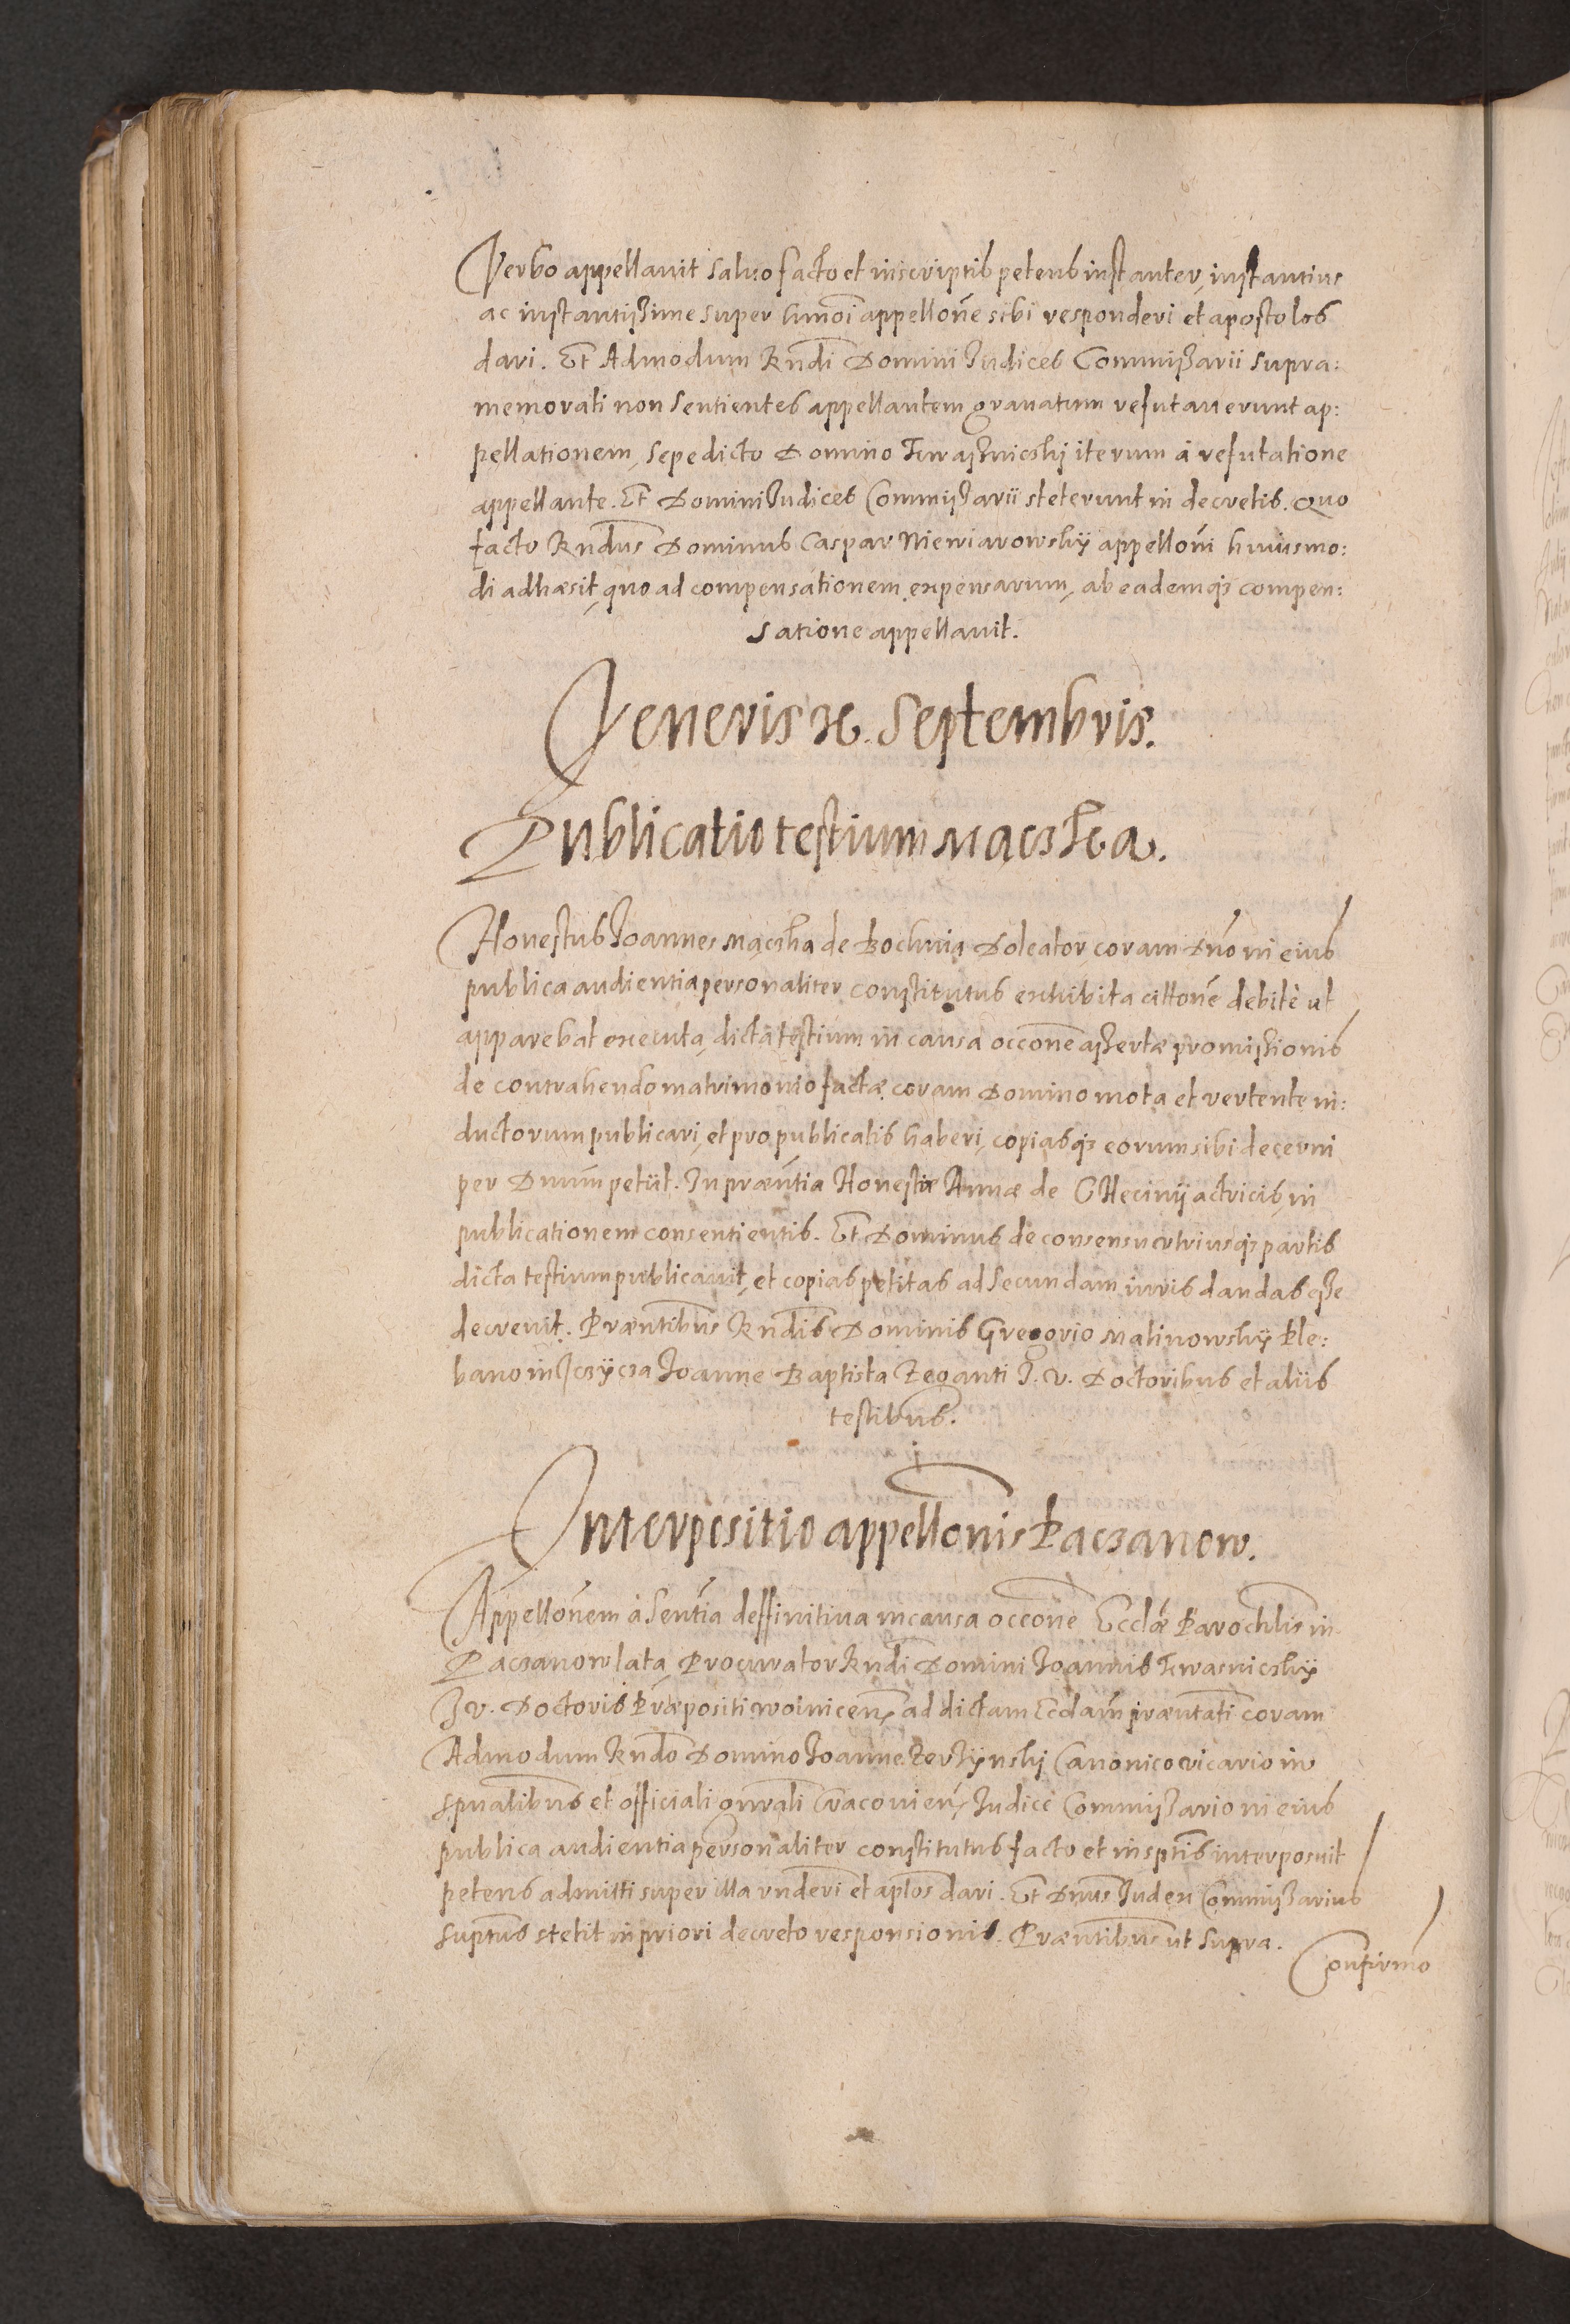 Verbo appellauit saluo facto et inscriptis petens instanter, instantius
ac instantissime super hmoi appellone sibi responderi et apostolos
dari. Et Admodum Rndi Domini Iudices Commissarii supra:
memorati non sentientes appellantem grauatum refutauerunt ap:
pellationem, sepe dicto Domino iterum à refutatione
appellante. Et Domini Iudices Commissarii steterunt in decretis. Quo
facto Rndus Dominus Caspar Niewiarowsky appelloni huiusmo:
di adhæsit, quo ad compensationem expensarum, ab eademq3 compen:
satione appellauit.
Veneris Septembris.
Publicatio testium Mączka.
Honestus Ioannes Mączka de Bochnia Doleator, coram Dno in eius
publica audientia personaliter constitutus exhibita cittone debitè ut
apparebat executa, dicta testium in causa occone assertæ promissionis
de contrahendo matrimonio factæ coram Domino mota et vertente in:
ductorum publicari, et pro publicatis haberi, copiasq3 eorum sibi decerni
per Dnum petiit. In præntia Honestæ Annæ de actricis, in
publicationem consentientis. Et Dominus de consensu utriusq3 partis
dicta testium publicauit, et copias petitas ad secundam iuris dandas esse
decreuit. Præntibus Rndis Dominis Gregorio Malinowsky Ple:
bano in Ioanne Baptista Zeganti I. V. Doctoribus et aliis
testibus.
Interpositio appellonis Paczanow.
Appellonem à sentia deffinitiua in causa occone Ecclæ Parochlis in
Paczanow lata, Procurator Rndi Domini Ioannis
I. V. Doctoris Præpositi woinicen, ad dictam Ecclam præntati coram
Admodum Rndo Domino Ioanne Canonico vicario in
spualibus et officiali gnrali Cracouien, Iudice Commissario in eius
publica audientia personaliter constitutus facto et in sptis interposuit
petens admitti super illa rnderi et aplos dari. Et Dnus Iudex Commissarius
suptus stetit in priori decreto responsionis. Præntibus ut supra.
Confirmo